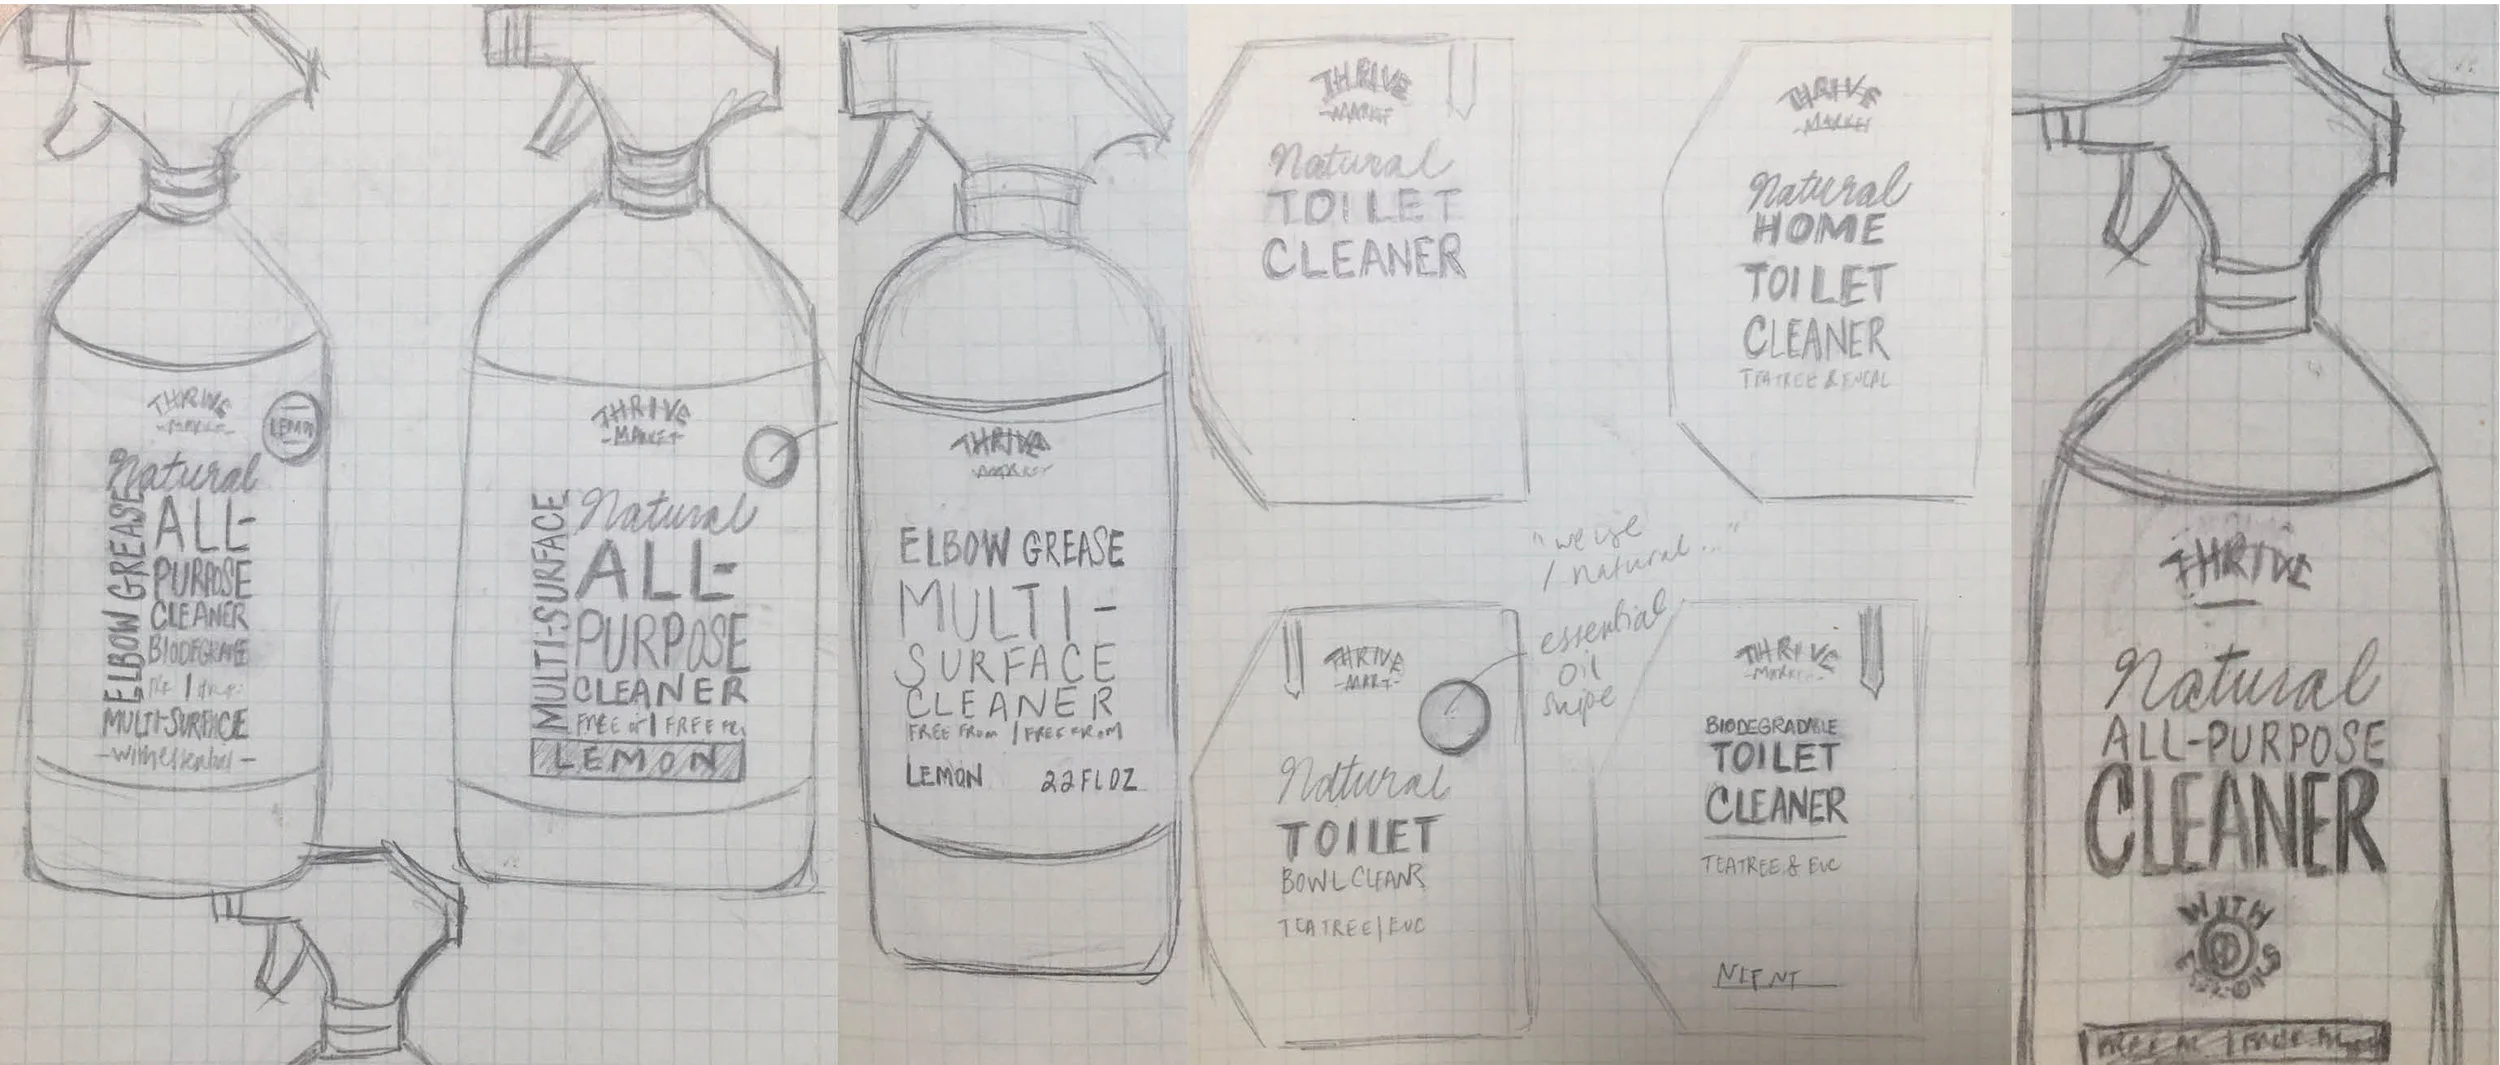 THRIVE
-MARKET-
LEMON
Natural
ELBOW GREASE
ALL-
PURPOSE
CLEANER
MULTI-SURFACE
THRIVE
-MARKET-
MULTI-SURFACE
Natural
ALL-
PURPOSE
CLEANER
FREE OF | FREE
LEMON
THRIVE
MARKET
ELBOW GREASE
MULTI-
SURFACE
CLEANER
FREE FROM / FREE FROM
LEMON 22 FL OZ
THRIVE
-MARKET
Natural
TOILET
CLEANER
THRIVE
-MARKET
Natural
HOME
TOILET
CLEANER
TEATREE & EUCAL
"we use
/ natural..."
essential
oil
snipe
THRIVE
-MARKT-
Natural
TOILET
BOWL CLEANR
TEATREE | EUC
THRIVE
MARKET
BIODEGRADABLE
TOILET
CLEANER
TEATREE & EUC
NET WT
THRIVE
Natural
ALL-PURPOSE
CLEANER
WITH